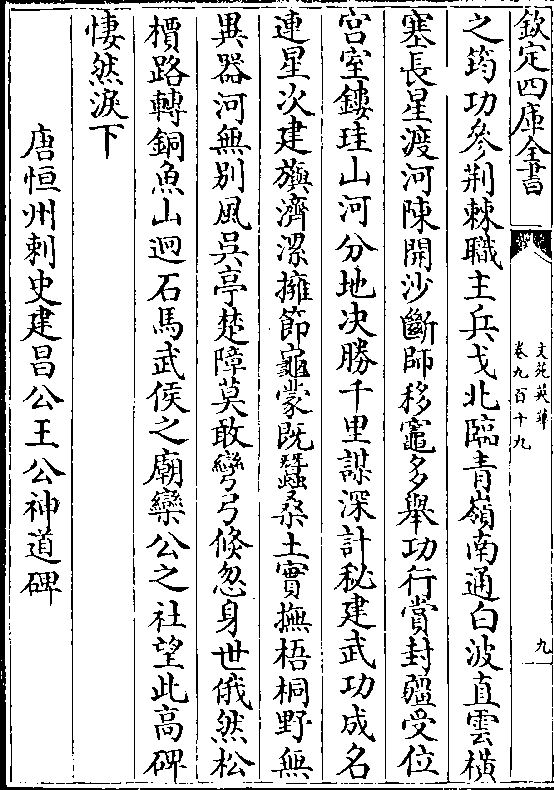 欽定四庫全書
文苑英華
卷九百十九
九
之筠功參荆棘職主兵戈北臨青嶺南通白波直雲横
塞長星渡河陳開沙斷師移竈多舉功行賞封疆受位
宫室鏤珪山河分地决勝千里謀深計秘建武功成名
連星次建旟濟漯擁節龜蒙既蠶桑土實撫梧桐野無
異器河無别風吳亭楚障莫敢彎弓倏忽身世俄然松
檟路轉銅魚山迴石馬武侯之廟欒公之社望此高碑
悽然淚下
唐恒州刺史建昌公王公神道碑